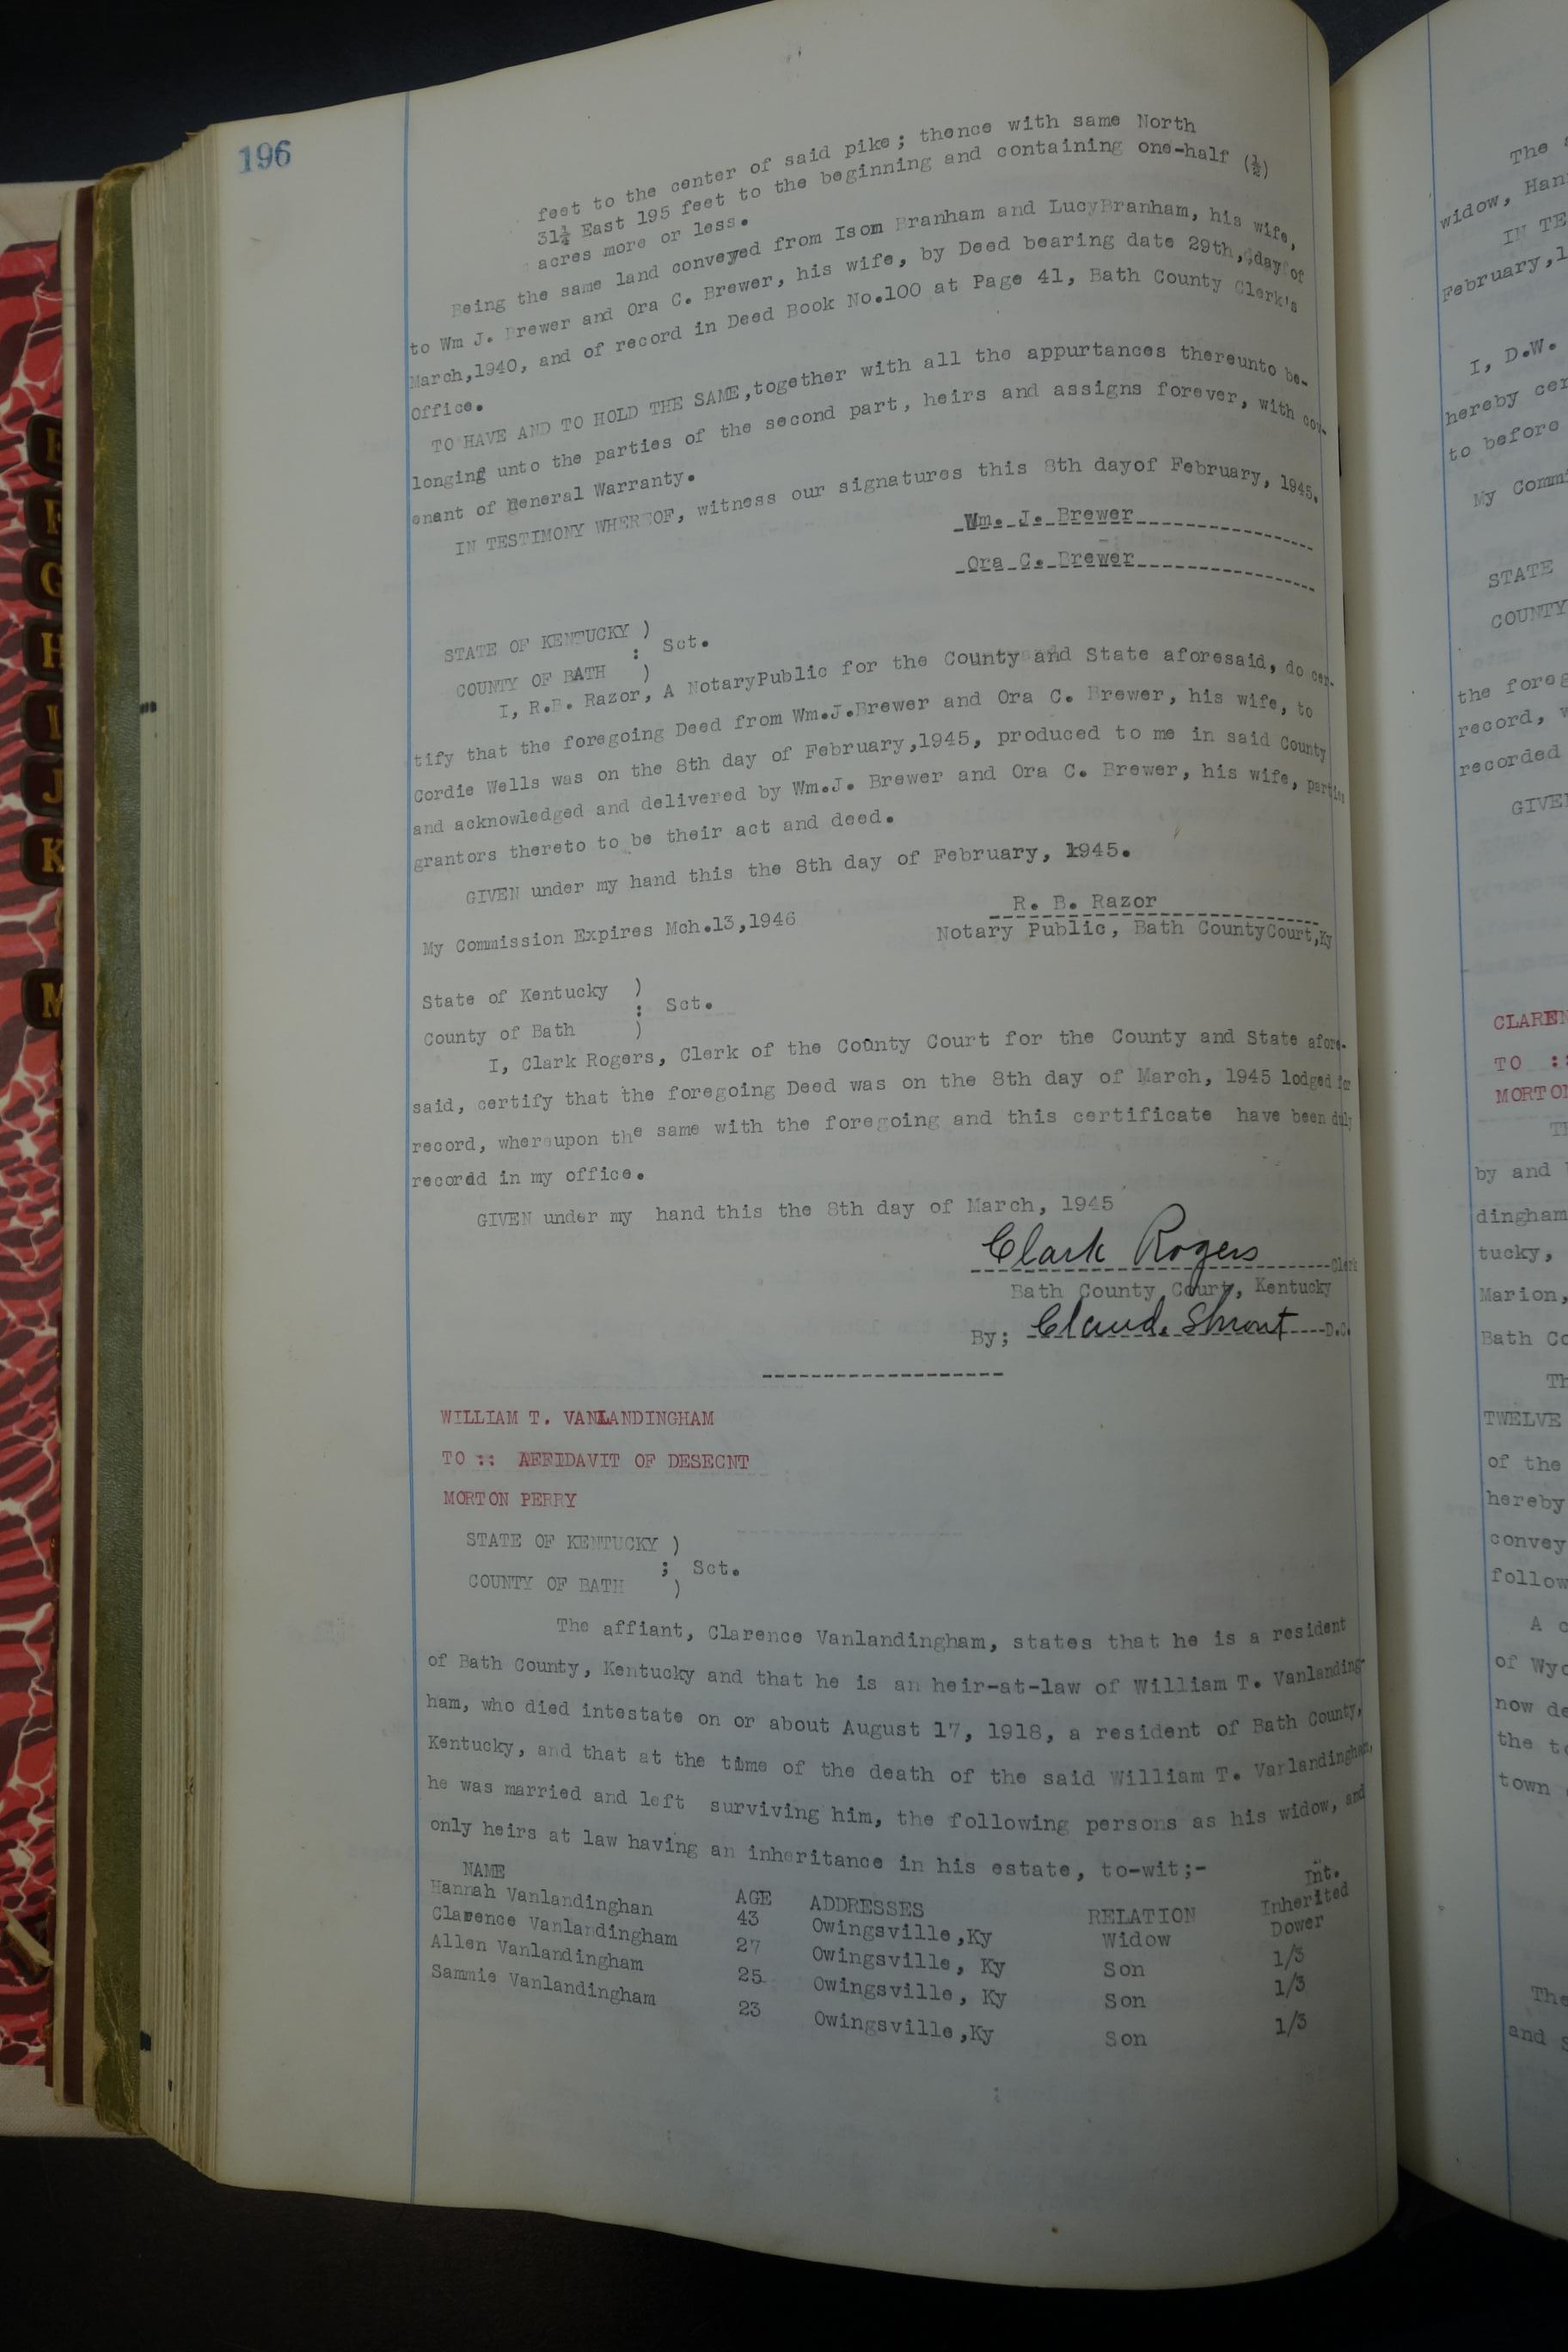 196
feet to the center of said pike; thence with same North
31¼ East 195 feet to the beginning and containing one-half (½)
acres more or less.
Being the same land conveyed from Isom Branham and LucyBranham, his wife,
to Wm J. Brewer and Ora C. Brewer, his wife, by Deed bearing date 29th, day of
March,1940, and of record in Deed Book No.100 at Page 41, Bath County Clerk's
Office.
TO HAVE AND TO HOLD THE SAME,together with all the appurtances thereunto be-
longing unto the parties of the second part, heirs and assigns forever, with cov-
enant of General Warranty.
IN TESTIMONY WHEREOF, witness our signatures this 8th dayof February, 1945.
Wm. J. Brewer
Ora C. Brewer
STATE OF KENTUCKY )
: Sct.
COUNTY OF BATH )
I, R.B. Razor, A NotaryPublic for the County and State aforesaid, do cer-
tify that the foregoing Deed from Wm.J.Brewer and Ora C. Brewer, his wife, to
Cordie Wells was on the 8th day of February,1945, produced to me in said County
and acknowledged and delivered by Wm.J. Brewer and Ora C. Brewer, his wife, parties
grantors thereto to be their act and deed.
GIVEN under my hand this the 8th day of February, 1945.
R. B. Razor
My Commission Expires Mch.13,1946
Notary Public, Bath CountyCourt,Ky
State of Kentucky )
: Sct.
County of Bath )
I, Clark Rogers, Clerk of the County Court for the County and State afore-
said, certify that the foregoing Deed was on the 8th day of March, 1945 lodged for
record, whereupon the same with the foregoing and this certificate have been duly
recordd in my office.
GIVEN under my hand this the 8th day of March, 1945
Clark Rogers Clerk
Bath County Court, Kentucky
By; Claud. Shrout D.C.
WILLIAM T. VANLANDINGHAM
TO :: AFFIDAVIT OF DESECNT
MORTON PERRY
STATE OF KENTUCKY )
; Sct.
COUNTY OF BATH )
The affiant, Clarence Vanlandingham, states that he is a resident
of Bath County, Kentucky and that he is an heir-at-law of William T. Vanlanding-
ham, who died intestate on or about August 17, 1918, a resident of Bath County,
Kentucky, and that at the time of the death of the said William T. Vanlandingham,
he was married and left surviving him, the following persons as his widow, and
only heirs at law having an inheritance in his estate, to-wit;-
NAME AGE ADDRESSES RELATION Int. Inherited
Hannah Vanlandinghan 43 Owingsville,Ky Widow Dower
Clarence Vanlandingham 27 Owingsville, Ky Son 1/3
Allen Vanlandingham 25 Owingsville, Ky Son 1/3
Sammie Vanlandingham 23 Owingsville,Ky Son 1/3
The
widow, Han
IN TE
February,1
I, D.W.
hereby cer
to before
My Commi
STATE
COUNTY
the foreg
record, w
recorded
GIVE
CLAREN
TO ::
MORTON
Th
by and
dingham
tucky,
Marion,
Bath Co
Th
TWELVE
of the
hereby
convey
follow
A c
of Wyo
now de
the to
town
The
and s
E
F
G
H
I
J
K
M